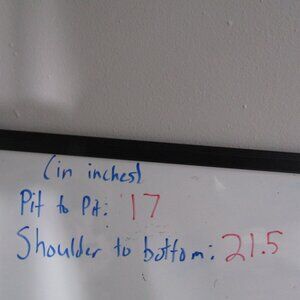 (in inches)
Pit to Pit: 17
Shoulder to bottom: 21.5